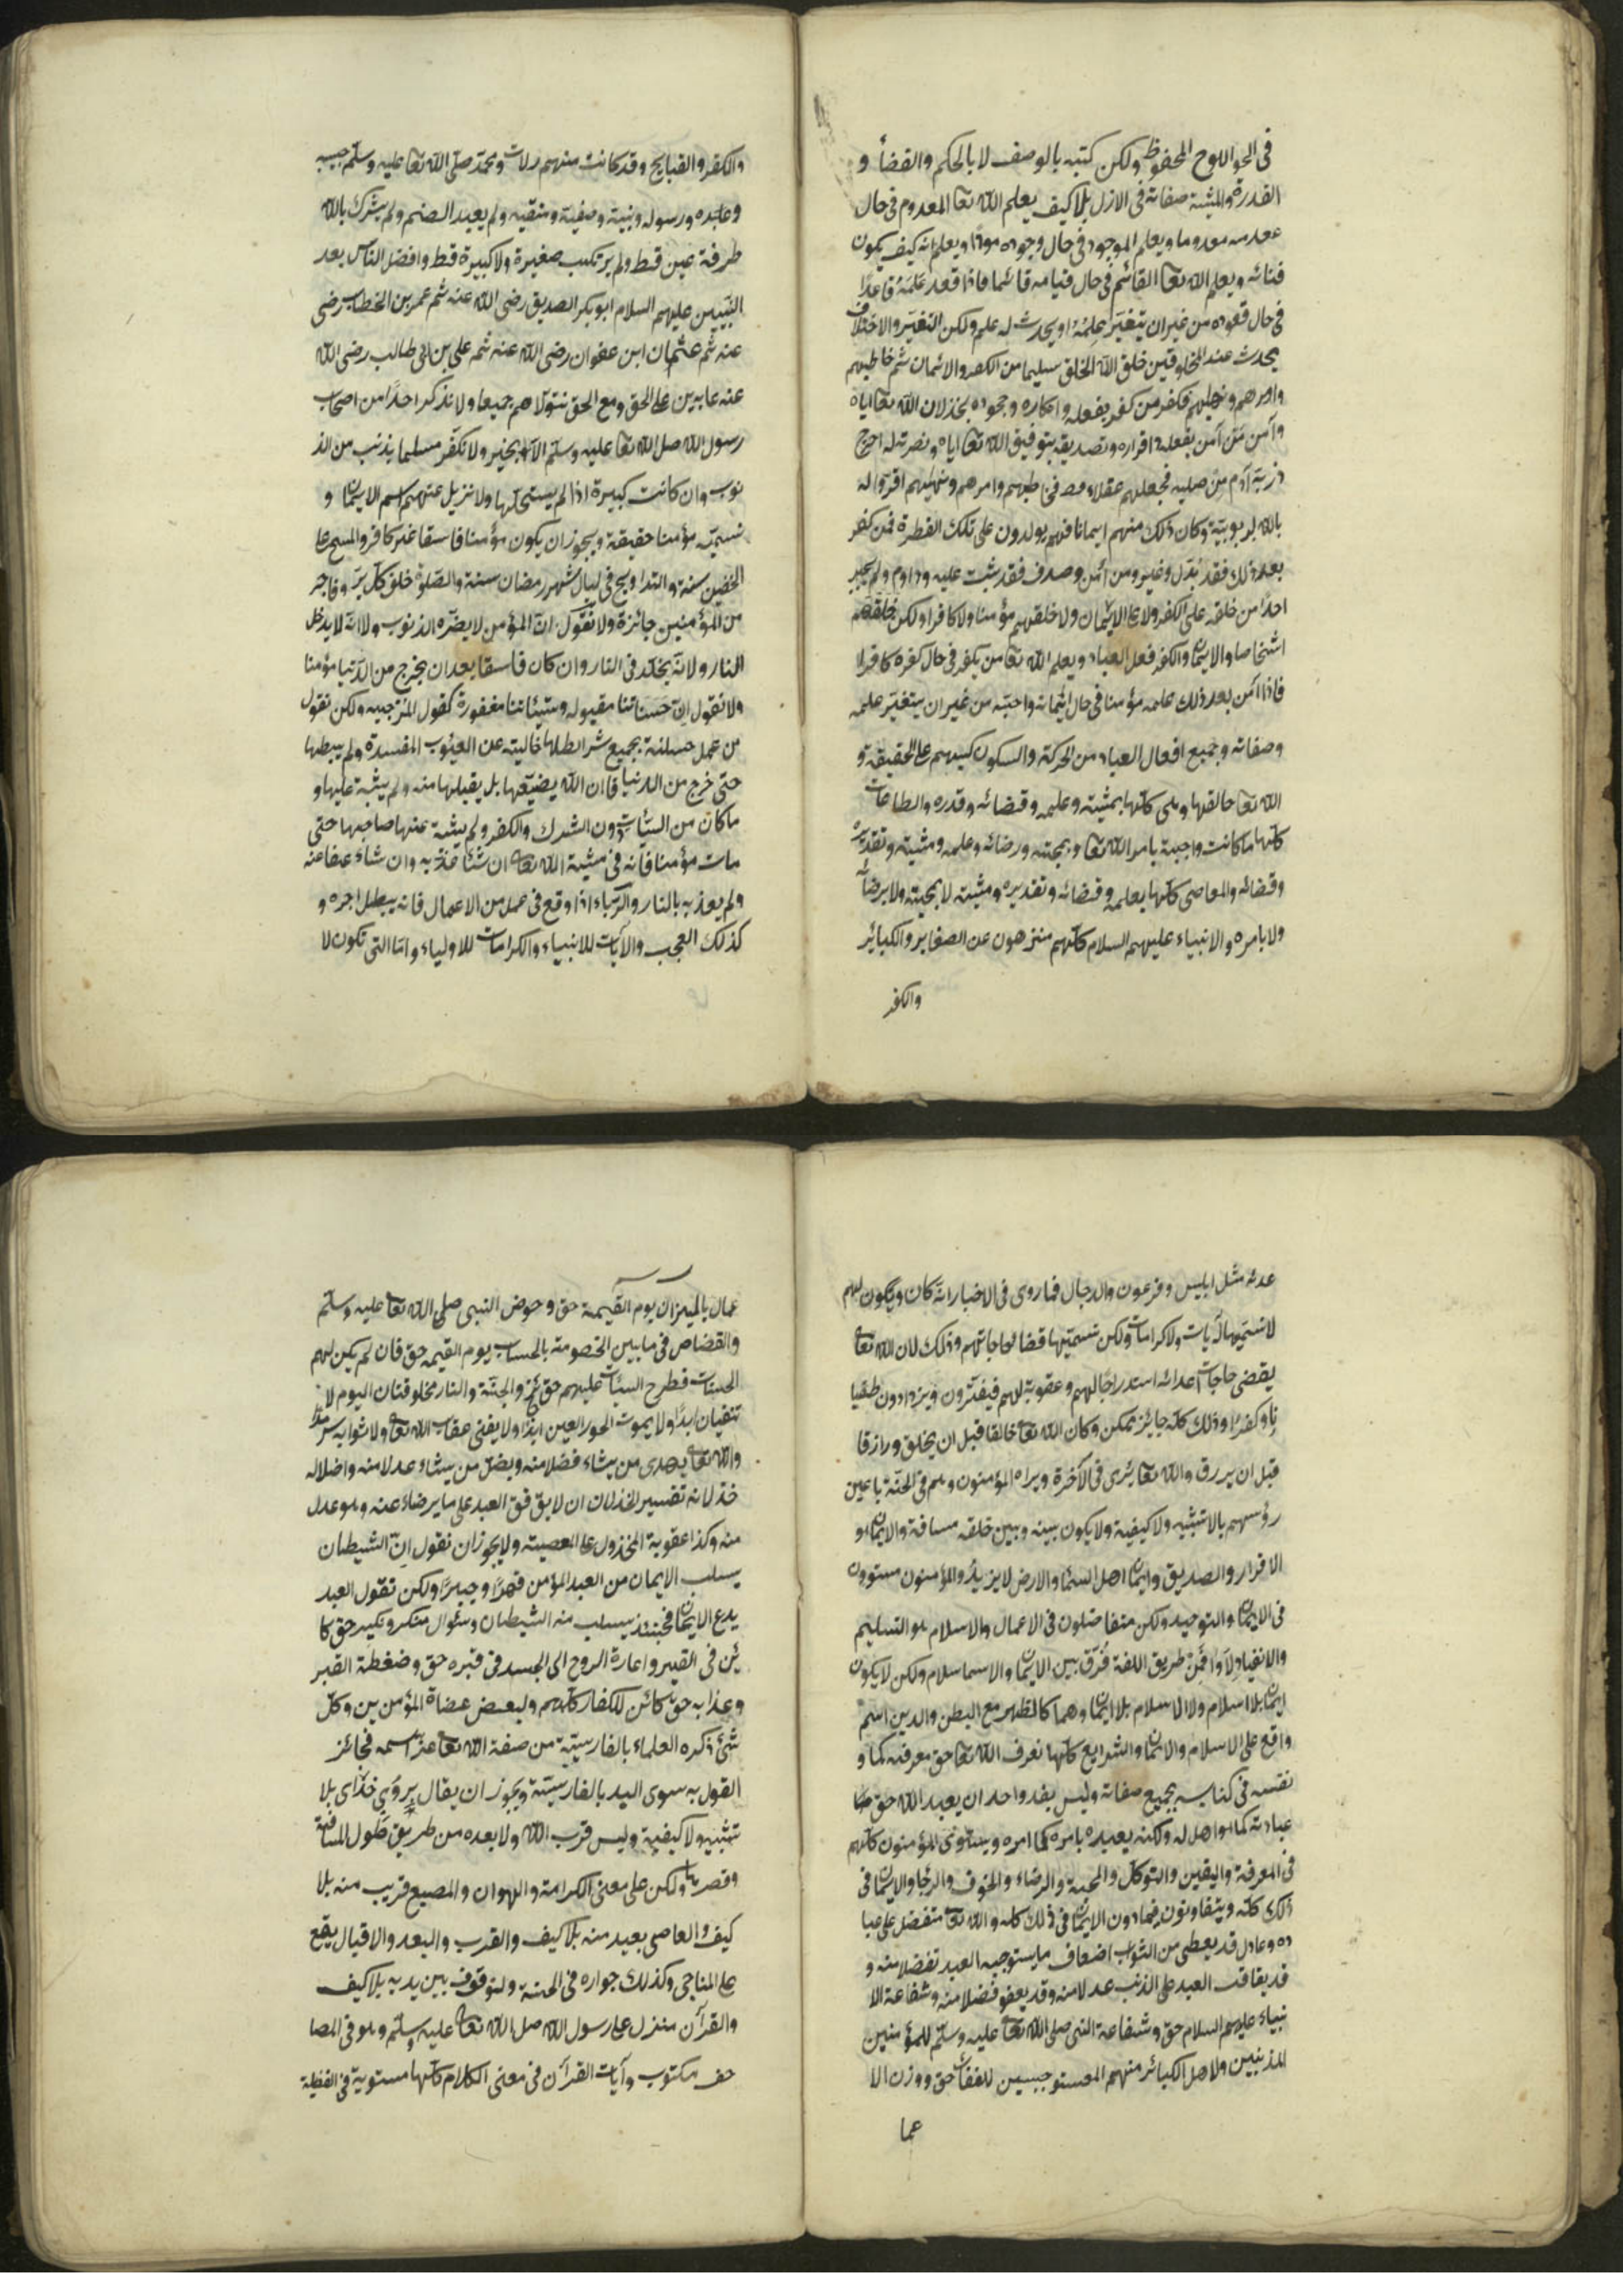 في اللوح المحفوظ ولكن كتبه بالوصف لا بالحكم والقضأ و
القدرة والمشية صفاته في الازل بلا كيف يعلم الله تعا المعدوم في حال
عدمه معدوما ويعلم الموجود في حال وجوده موجودا ويعلم انه كيف يكون
فنائه ويعلم الله تعا القائم في حال قيامه قائما فاذا قعد علمه قاعدًا
في حال قعوده من غير ان يتغيّر علمه او يحدث له علم ولكن التغيّر والاختلاف
يحدث عند المخلوقين خلق الله الخلق سليما من الكفر والائمان ثم خاطبهم
وامرهم ونهيهم فكفر من كفر بفعله وانكاره وجحوده بخذلان الله تعا اياه
وآمن من آمن بفعله واقراره وتصديقه بتوفيق الله تعا اياه ونصرته له اخرج
ذرية آدم من صلبه فجعلهم عقلاء فخاطبهم وامرهم ونهيهم اقروا له
بالله لربوبيّة وكان ذلك منهم ايمانا فهم يولدون على تلك الفطرة فمن كفر
بعد ذلك فقد بدّل وغير ومن أمن وصدق فقد ثبت عليه وداوم ولم يجبر
احدًا من خلقه على الكفر ولا على الايمان ولا خلقهم مؤمنا ولا كافرا ولكن خلقهم
اشخاصا والايمان والكفر فعل العباد ويعلم الله تعا من يكفر في حال كفره كافرا
فاذا امن بعد ذلك علمه مؤمنا في حال ايمانه واحبّه من غير ان يتغيّر علمه
وصفاته وجميع افعال العباد من الحركة والسكون كسبهم على الحقيقة و
الله تعا خالقها وهي كلها بمشيته وعلمه وقضائه وقدره والطاعات
كلها ما كانت واجبة بامر الله تعا وبمحبته ورضائه وعلمه ومشيته وتقديره
وقضائه والمعاصي كلها بعلمه وقضائه وتقديره ومشيته لا بمحبته ولا برضائه
ولا بامره والانبياء عليهم السلام كلهم منزهون عن الصغاير والكبائر
والكفر
والكفر والقبايح وقد كانت منهم زلات ومحمد صلى الله تعا عليه وسلم حبيبه
وعبده ورسوله ونبيه وصفيه ونقيه ولم يعبد الصنم ولم يشرك بالله
طرفة عين قط ولم يرتكب صغيرة ولا كبيرة قط وافضل الناس بعد
النبيين عليهم السلام ابو بكر الصديق رضي الله عنه ثم عمر بن الخطاب رضي
عنه ثم عثمان ابن عفوان رضي الله عنه ثم علي بن ابي طالب رضي الله
عنه عابدين على الحق ومع الحق نتولاهم جميعا ولا نذكر احدًا من اصحاب
رسول الله صلى الله تعا عليه وسلم الا بخير ولا نكفر مسلما بذنب من الذ
نوب وان كانت كبيرة اذا لم يستحلها ولا نزيل عنهم اسم الايمان و
نسميه مؤمنا حقيقة ويجوز ان يكون مؤمنا فاسقا غير كافر والمسح على
الخفين سنة والتداويح في ليال شهر رمضان سنة والصلوة خلف كل بر وفاجر
من المؤمنين جائزة ولا نقول ان المؤمن لا يضره الذنوب ولا انه لا يدخل
النار ولا انه يخلد في النار وان كان فاسقا بعد ان يخرج من الدنيا مؤمنا
ولا نقول ان حسناتنا مقبوله وسيئاتنا مغفورة كقول المرجيه ولكن نقول
من عمل حسنة بجميع شرائطها خالية عن العيوب المفسدة ولم يبطلها
حتى خرج من الدنيا فان الله يضيّعها بل يقبلها منه ولم يثبه عليها و
ما كان من السيّأت دون الشرك والكفر ولم يثبه عنها صاحبها حتى
مات مؤمنا فانه في مشية الله تعا ان شأ عذبه وان شاء عفا عنه
ولم يعذبه بالنار والرياء اذا وقع في عمل من الاعمال فانه يبطل اجره و
كذلك العجب والآيات للانبياء والكرامات للاولياء واما التي تكون لا
عدئه مثل ابليس وفرعون والدجال فما روى في الاخبار انه كان ويكون لهم
لا نسميها آيات ولا كرامات ولكن نسميها قضا لحاجاتهم وذلك لان الله تعا
يقضي حاجات اعدائه استدراجا لهم وعقوبة لهم فيغترون ويزدادون طغيا
نا وكفرا وذلك كله جايز ممكن وكان الله تعا خالقا قبل ان يخلق ورازقا
قبل ان يرزق والله تعا يرى في الآخرة ويراه المؤمنون وهم في الجنة باعين
رؤسهم بلا تشبيه ولا كيفية ولا يكون بينه وبين خلقه مسافة والايمان هو
الاقرار والصديق وايمان اهل السمأ والارض لا يزيد والمؤمنون مستوون
في الايمان والتوحيد ولكن متفاضلون في الاعمال والاسلام هو التسليم
والانقياد لاوامر فمن طريق اللغة فرق بين الايمان والاسلام ولكن لا يكون
ايمان بلا اسلام ولا اسلام بلا ايمان وهما كالظهر مع البطن والدين اسم
واقع على الاسلام والايمان والشرايع كلها نعرف الله تعا حق معرفته كما و
نفسه في كتابه بجميع صفاته وليس يقدر احد ان يعبد الله حق
عبادته كما هو اهل له ولكنه يعبده بامره كما امره ويستوي المؤمنون كلهم
في المعرفة واليقين والتوكل والمحبة والرضاء والخوف والرجا والايمان في
ذلك كله ويتفاوتون فيما دون الايمان في ذلك كله والله تعا متفضل على عبا
ده وعادل قد يعطي من الثواب اضعاف ما يستوجبه العبد تفضلا منه و
قد يعاقب العبد على الذنب عدلا منه وقد يعفو فضلا منه وشفاعة الا
نبياء عليهم السلام حق وشفاعة النبي صلى الله تعا عليه وسلم للمؤمنين
المذنبين ولاهل الكبائر منهم المستوجبين للعقاب حق ووزن الا
عما
عمال بالميزان يوم القيمة حق وحوض النبي صلى الله تعا عليه وسلم
والقصاص في ما بين الخصومة بالحساب يوم القيمه حق فان لم يكن لهم
الحسنات فطرح السيئات عليهم حق والجنة والنار مخلوقتان اليوم لا
تنفيان ابدًا ولا يموت الحور العين ابدًا ولا يفنى عقاب الله تعا ولا ثوابه سرمدا
والله تعا يهدى من يشاء فضلا منه ويضل من يشاء عدلا منه واضلاله
خذلانه تفسير الخذلان ان لا يوفق العبد على ما يرضاه عنه وهو عدل
منه وكذا عقوبة المخذول على المعصيته ولا يجوز ان نقول ان الشيطان
يسلب الايمان من العبد المؤمن قهرًا وجبرًا ولكن تقول العبد
يدع الايمان فحينئذ يسلب منه الشيطان وسئوال منكر ونكير حق كا
ئن في القبر واعارة الروح الى الجسد في قبره حق وضغطة القبر
وعذابه حق كائن للكفار كلهم ولبعض عصاة المؤمن ين وكل
شئ ذكره العلماء بالفارسيّة من صفة الله تعا عز اسمه فجائز
القول به سوى اليد بالفارسيّة ويجوز ان يقال بروى خداى بلا
تشبيه ولا كيفية وليس قرب الله ولا بعده من طريق طول المسافة
وقصرها ولكن على معنى الكرامة والهوان والمطيع قريب منه بلا
كيف والعاصي بعيد منه بلا كيف والقرب والبعد والاقبال يقع
على المناجى وكذلك جواره في الجنة والوقوف بين يديه بلا كيف
والقرآن منزل على رسول الله صلى الله تعا عليه وسلم وهو في المصا
حف مكتوب وآيات القرآن في معنى الكلام كلها مستوية في الفضيلة